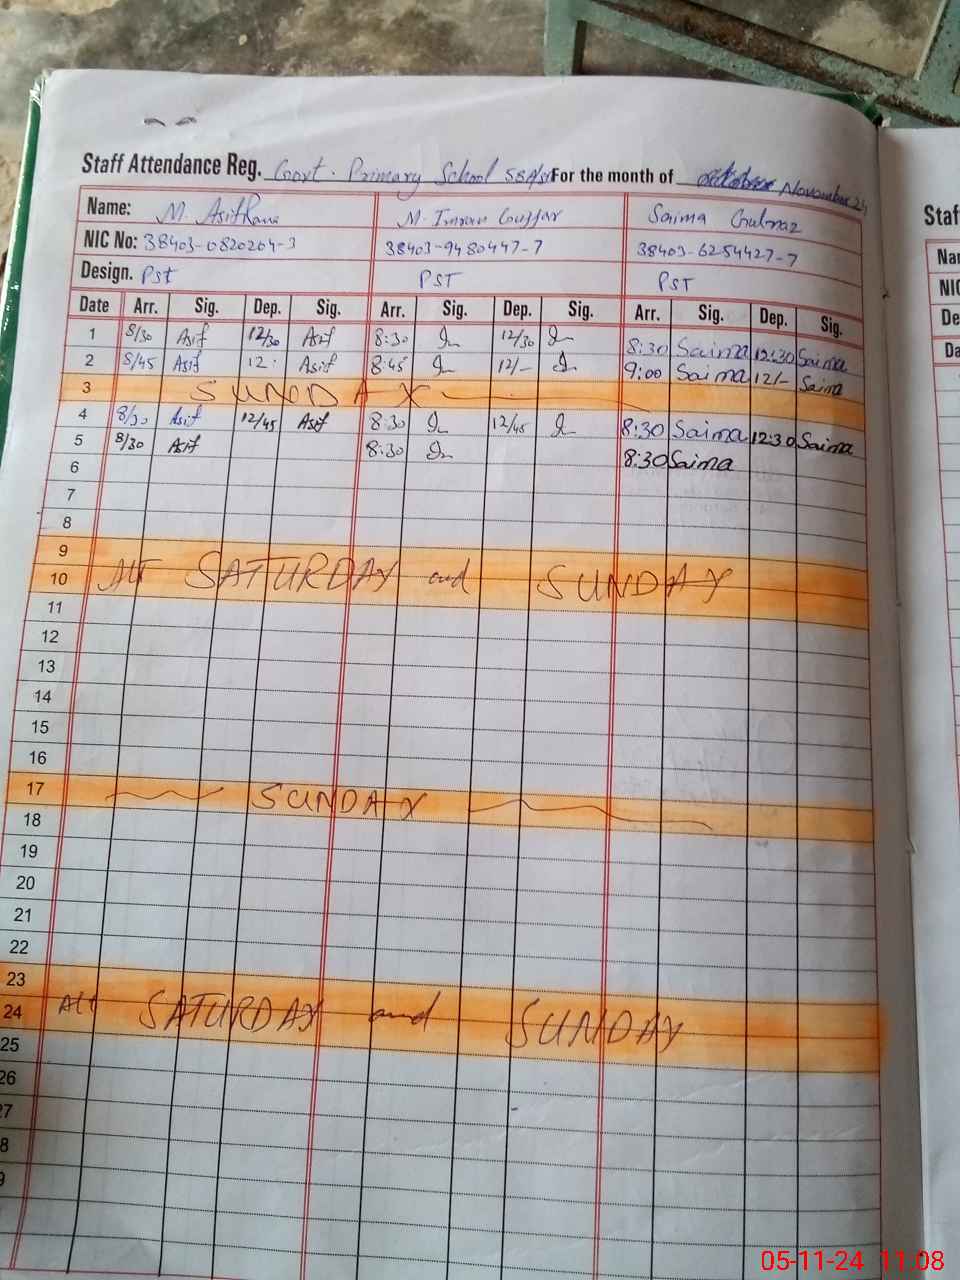 Staff Attendance Reg. Govt. Primary School 58A/SB For the month of November 24
Name: M. Asif M. Imran Gujjar Saima Gulnaz
NIC No: 38403-0820204-3 38403-9480447-7 38403-6254427-7
Design. Pst PST PST
Date Arr. Sig. Dep. Sig. Arr. Sig. Dep. Sig. Arr. Sig. Dep. Sig.
1 8/30 Asif 12/30 Asif 8:30 12/30 8:30 Saima 12:30 Saima
2 8/45 Asif 12 Asif 8:45 12/- 9:00 Saima 12/- Saima
3 SUNDAY
4 8/30 Asif 12/45 Asif 8:30 12/45 8:30 Saima 12:30 Saima
5 8/30 Asif 8:30 8:30 Saima
6
7
8
9
10 Alt SATURDAY and SUNDAY
11
12
13
14
15
16
17 SUNDAY
18
19
20
21
22
23
24 Alt SATURDAY and SUNDAY
25
26
27
8
9
Staf
Nar
NIC
De
Da
05-11-24 11.08